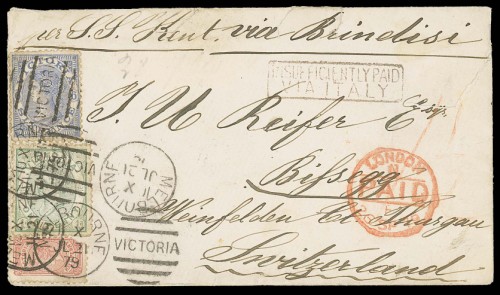 per S.S. Kent, via Brindisi
INSUFFICIENTLY PAID
VIA ITALY
J. U. Reifer Esqr.
Bissegg
Weinfelden Ct. Thurgau
Switzerland
MELBOURNE
X
JL 21
VICTORIA
LONDON
PAID
VICTORIA
MELBOURNE
X
JL 21
79